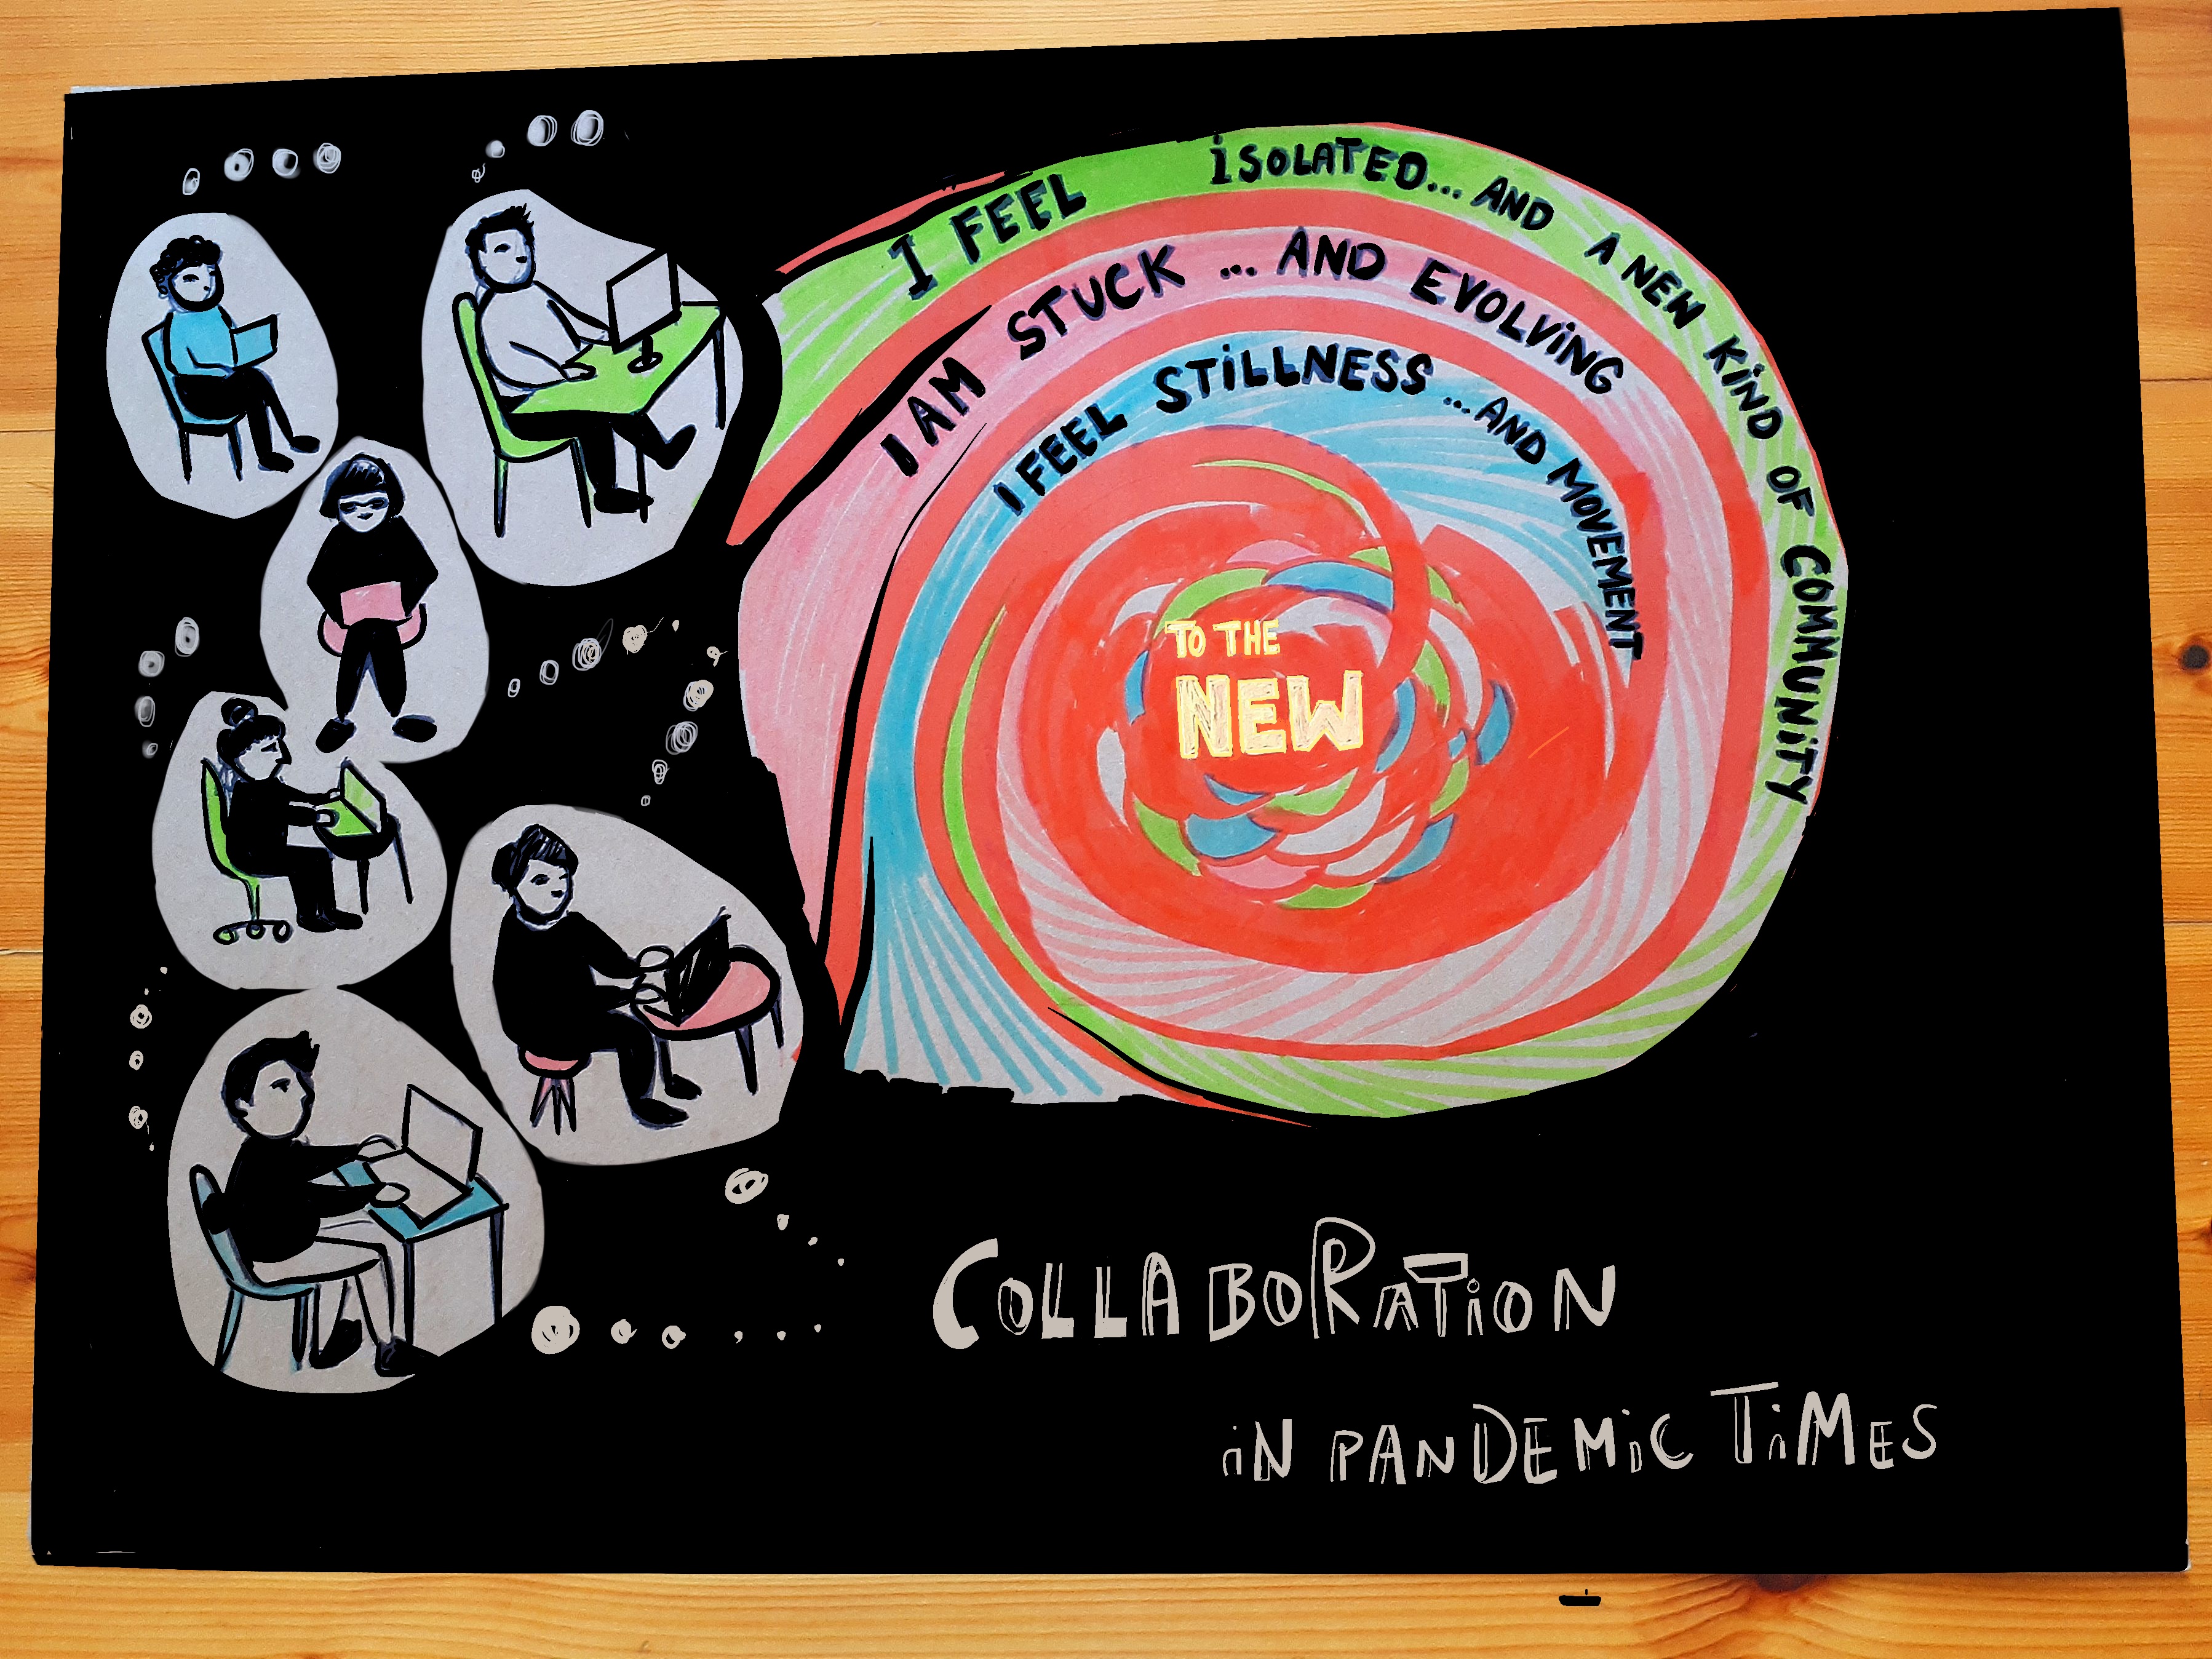 I FEEL ISOLATED... AND A NEW KIND OF COMMUNITY
I AM STUCK ... AND EVOLVING
I FEEL STILLNESS ...AND MOVEMENT
TO THE
NEW
COLLABORATION
IN PANDEMIC TIMES